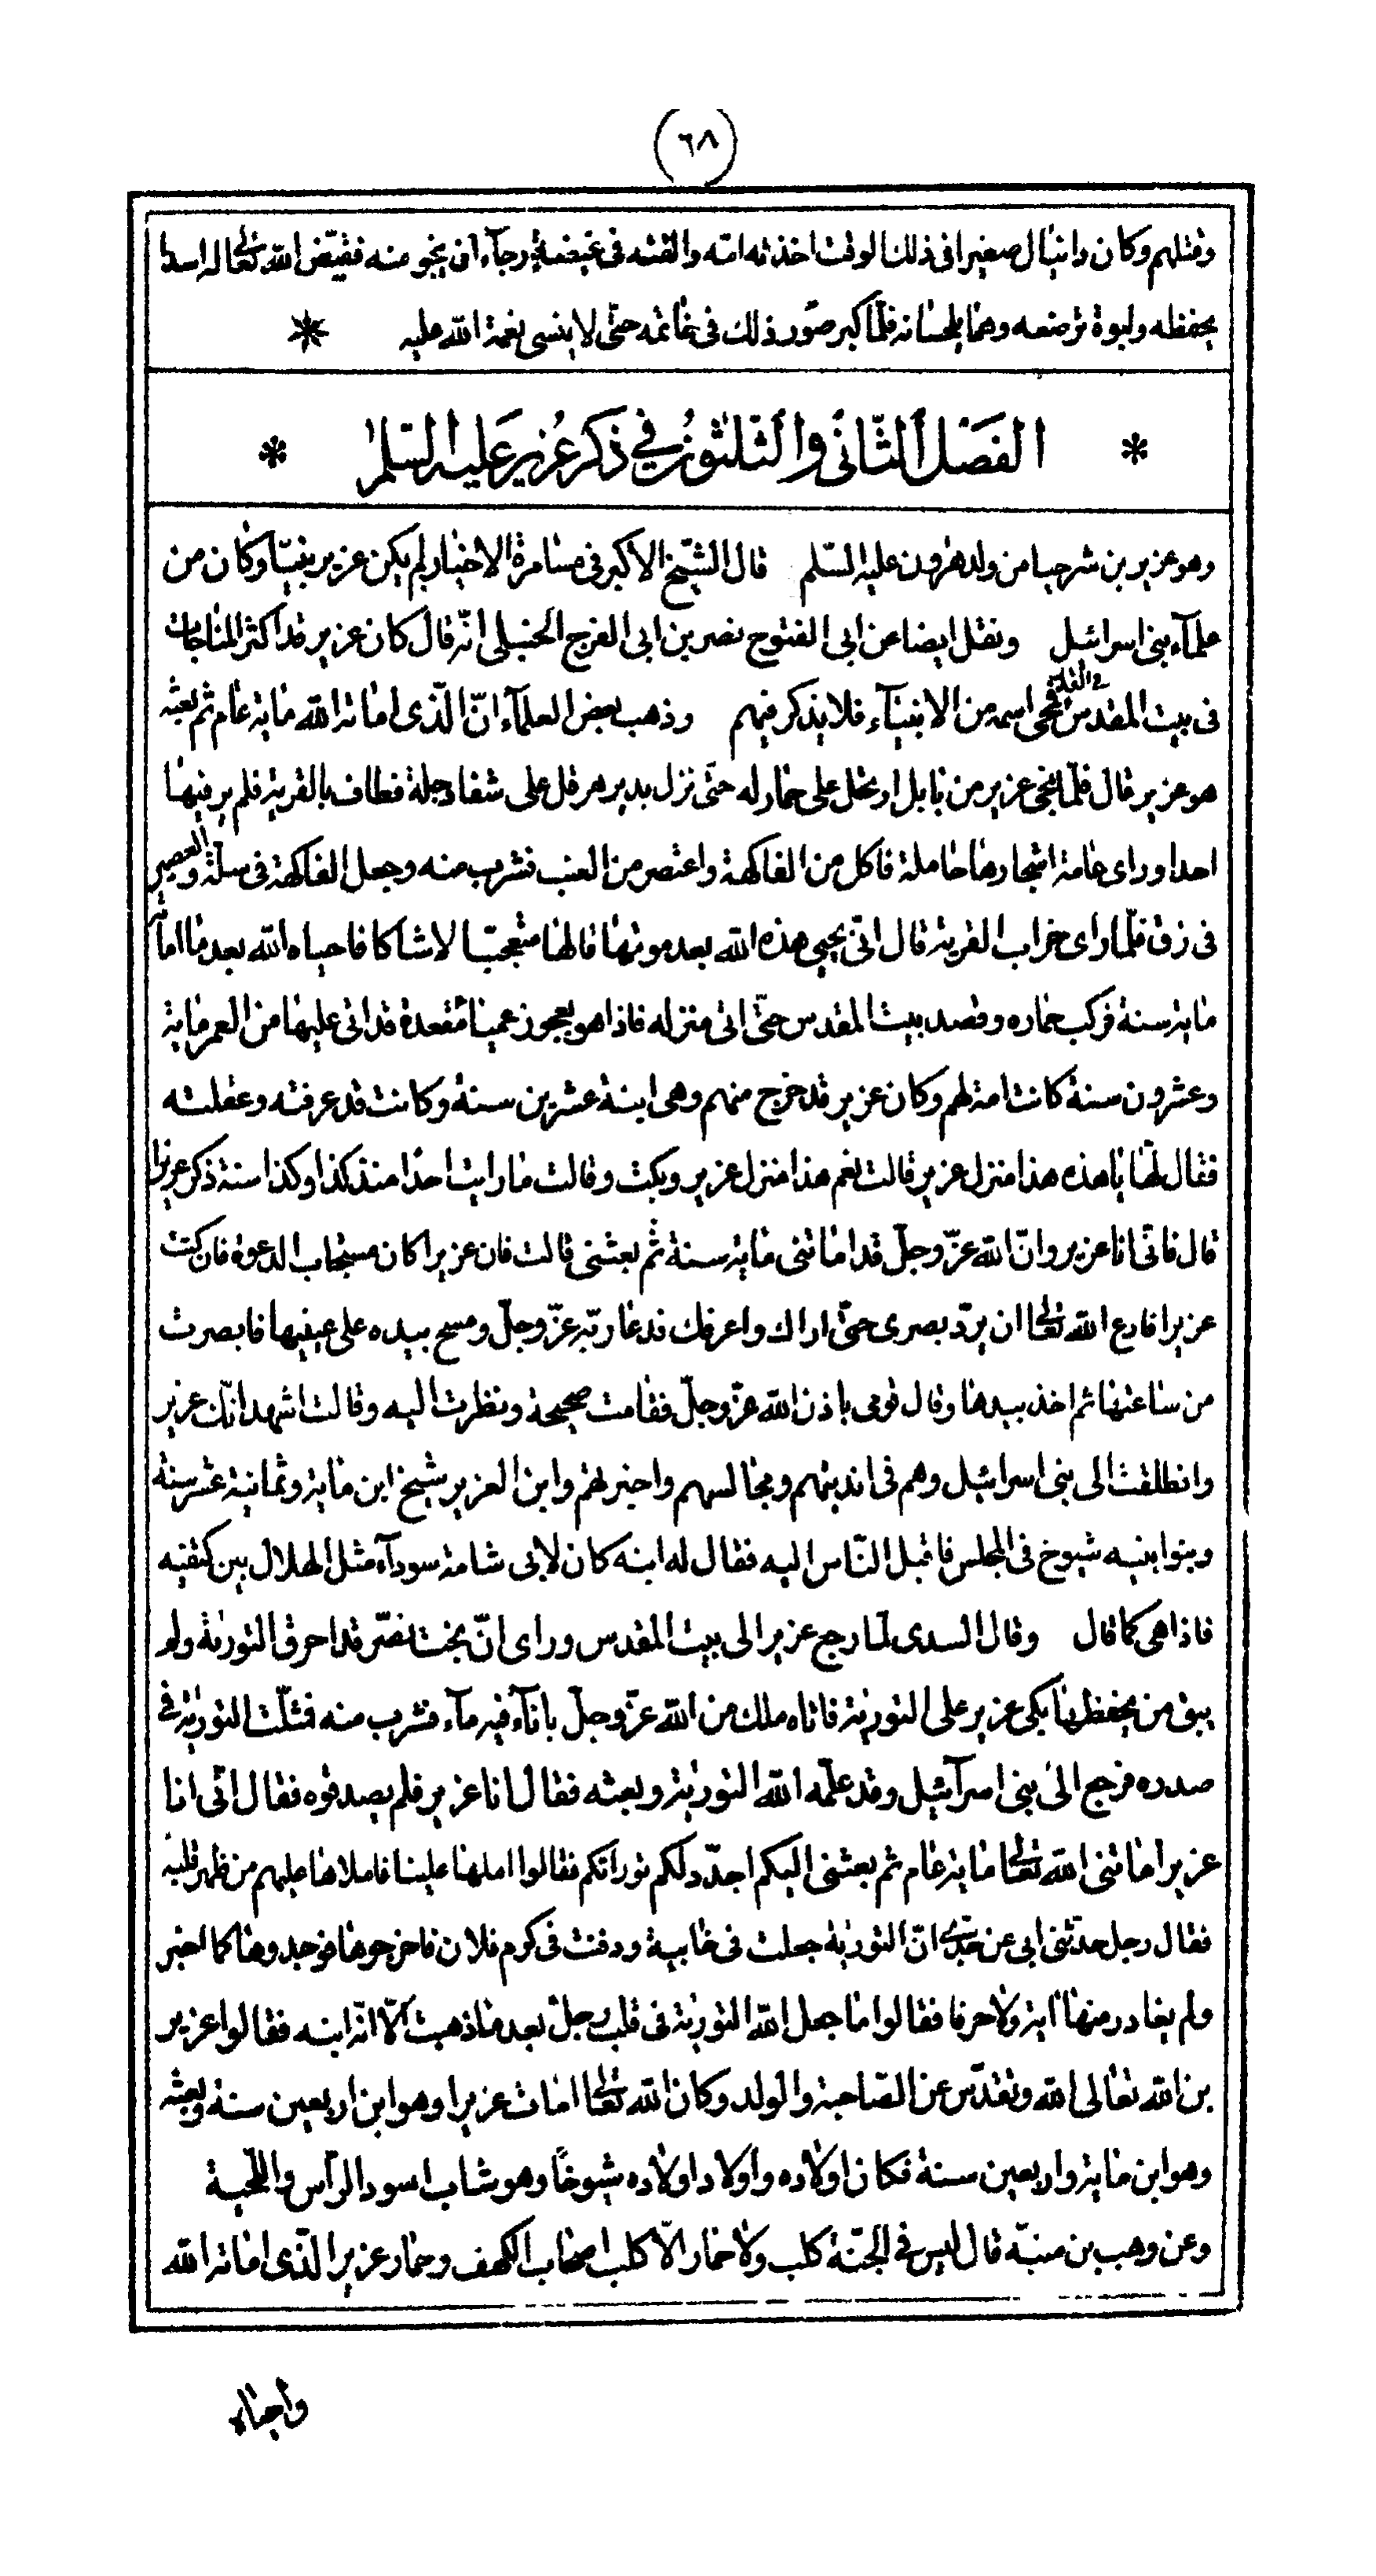 (٦٨)
وقتلهم وكان دانيال صغيرا فى ذلك الوقت اخذته امّه والقته فى غيضة رجآء ان ينجو منه فقيّض الله تعالى له اسدا
يحفظه ولبوة ترضعه وهما يلحسانه فلمّا كبر صوّر ذلك فى خاتمه حتّى لا ينسى نعمة الله عليه *
* الفصل الثّانى والثّلثون في ذكر عزير عليه السّلم *
وهو عزير بن شرحيا من ولد هرون عليه السّلم قال الشّيخ الاكبر فى مسامرة الاخيار لم يكن عزير بنبيّا وكان من
علمآء بنى اسرائيل ونقل ايضا عن ابى الفتوح نصر بن ابى الفرج الحنبلى انّه قال كان عزير قد اكثر المناجات
فى بيت المقدس فى القدر فمحى اسمه من الانبيآء فلا يذكر فيهم وذهب بعض العلمآء انّ الّذى اماته الله مايه عام ثم بعثه
هو عزير قال فلمّا نجى عزير من بابل ارتحل على حمار له حتّى نزل بدير هرقل على شفا دجلة فطاف بالقرية فلم ير فيها
احدا وراى عامة اشجارها حاملة فاكل من الفاكهة واعتصر من العنب فشرب منه وجعل الفاكهة فى سلّة والعصير
فى زق فلمّا راى خراب القرية قال انّى يحيى هذه الله بعد موتها قالها متعجّبا لا شاكا فاحياه الله بعد ما اماته
مايه سنة فركب حماره وقصد بيت المقدس حتّى اتى منزله فاذا هو بعجوز عميا مقعدة قد اتى عليها من العمر مايه
وعشرون سنة كانت امة لهم وكان عزير قد خرج منهم وهى ابنة عشرين سنة وكانت قد عرفته وعقلته
فقال لها يا هذه هذا منزل عزير قالت نعم هذا منزل عزير وبكت وقالت ما رايت احدا منذ كذا وكذا سنة ذكر عزيرا
قال فانّى انا عزير وانّ الله عزّ وجلّ قد اماتنى مايه سنة ثم بعثنى قالت فان عزيرا كان مستجاب الدعوة فان كنت
عزيرا فادع الله تعالى ان يردّ بصرى حتّى اراك واعرفك فدعا ربّه عزّ وجلّ ومسح بيده على عينيها فابصرت
من ساعتها ثم اخذ بيدها وقال قومى باذن الله عزّ وجلّ فقامت صحيحة ونظرت اليه وقالت اشهد انّك عزير
وانطلقت الى بنى اسرائيل وهم فى انديتهم ومجالسهم واخبرتهم وابن العزير شيخ ابن مايه وثمانية عشر سنة
وبنوا بنيه شيوخ فى المجلس فاقبل النّاس اليه فقال له ابنه كان لابى شامة سودآء مثل الهلال بين كتفيه
فاذا هى كما قال وقال السدى لما رجع عزير الى بيت المقدس وراى انّ بخت نصّر قد احرق التورية ولم
يبق من يحفظها بكى عزير على التورية فاتاه ملك من الله عزّ وجلّ باناء فيه مآء فشرب منه فمثلت التورية في
صدره فرجع الى بنى اسرآئيل وقد علّمه الله التورية وبعثه فقال انا عزير فلم يصدقوه فقال انّى انا
عزير اماتنى الله تعالى مايه عام ثم بعثنى اليكم اجدّد لكم توراتكم فقالوا املها علينا فاملاها عليهم من ظهر قلبه
فقال رجل حدّثنى ابى عن جدّى انّ التورية جعلت فى خابية ودفنت فى كرم فلان فاخرجوها فوجدوها كما اخبر
ولم يغادر منها اية ولا حرفا فقالوا ما جعل الله التورية فى قلب رجل بعد ما ذهبت الّا انّه ابنه فقالوا عزير
بن الله تعالى الله وتقدّس عن الصّاحبة والولد وكان الله تعالى امات عزيرا وهو ابن اربعين سنة وبعثه
وهو ابن مايه واربعين سنة فكان اولاده واولاد اولاده شيوخًا وهو شاب اسود الرّاس واللّحية
وعن وهب بن منبّه قال ليس في الجنّة كلب ولا حمار الّا كلب اصحاب الكهف وحمار عزير الّذى اماته الله
واحياه